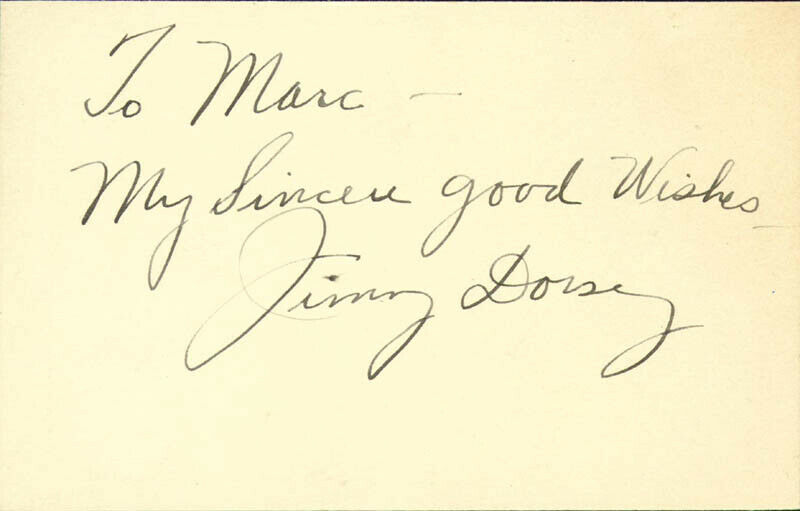 To Marc –
My Sincere good Wishes
Jimmy Dorsey